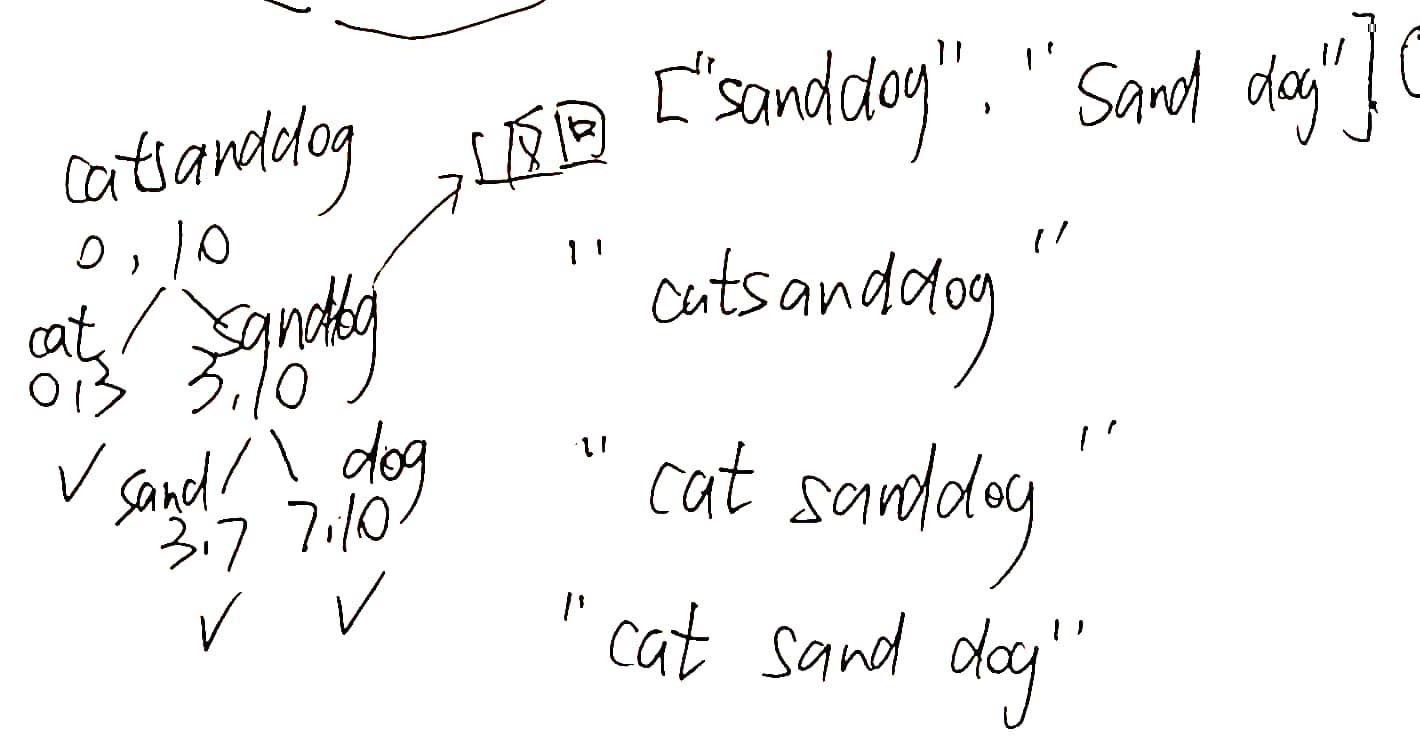 ["sanddog", "Sand dog"]
catsanddog
0, 10
cat sanddog
0,3 3,10
sand dog
3,7 7,10
"catsanddog"
"cat sanddog"
"cat sand dog"